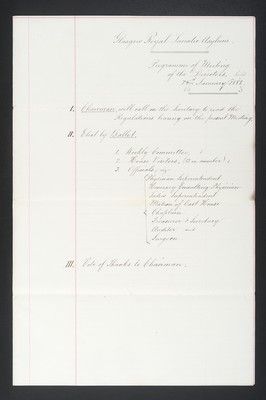 Glasgow Royal Lunatic Asylum.
Programme of Meeting
of the Directors, held
24th January 1881.
I. Chairman will call on the Secretary to read the
Regulations bearing on the present Meeting
II. Elect by Ballot,
1. Weekly Committee,
2. House Visitors, (One number)
3. Officials, viz:
Physician Superintendent
Honorary Consulting Physician
Lady Superintendent
Matron of East House
Chaplain
Treasurer & Secretary
Auditor and
Surgeon
III. Vote of Thanks to Chairman.